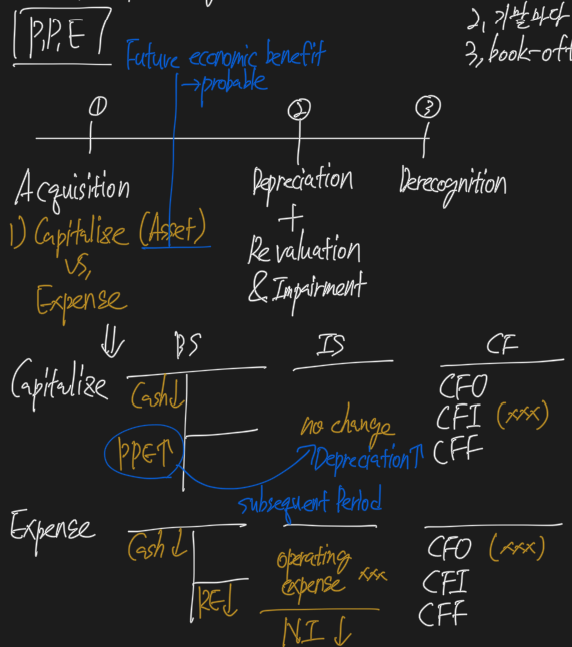 P,P,E
2, 기말마다
3, book-off
Future economic benefit
→probable
① ② ③
Acquisition
1) Capitalize (Asset)
VS,
Expense
Depreciation
+
Revaluation
& Impairment
Derecognition
⇓ BS IS CF
Capitalize
Cash↓
PPE↑
no change
Depreciation↑
subsequent Period
CFO
CFI (xxx)
CFF
Expense
Cash↓
RE↓
operating
expense xxx
N.I ↓
CFO (xxx)
CFI
CFF